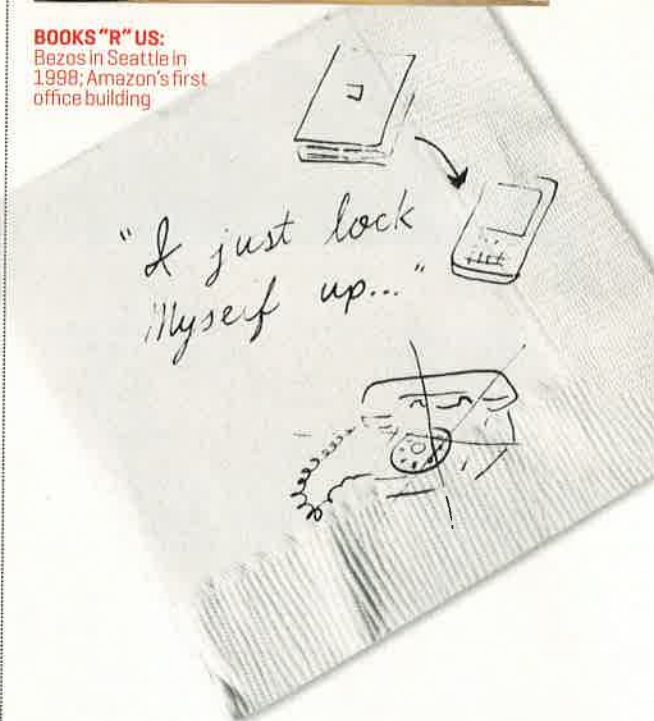 BOOKS “R” US:
Bezos in Seattle in
1998; Amazon's first
office building
"I just lock
Myself up..."